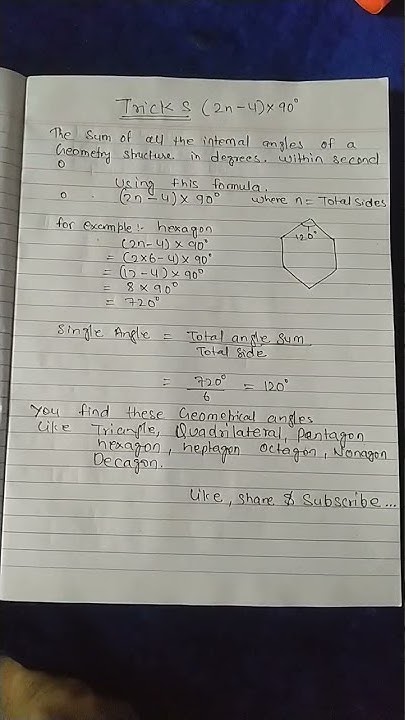 Tricks (2n-4)×90°
The Sum of all the internal angles of a
Geometry structure in degrees. Within second
Using this formula.
(2n-4)×90° where n=Total sides
for example:- hexagon
120°
(2n-4)×90°
= (2×6-4)×90°
= (12-4)×90°
= 8×90°
= 720°
Single Angle = Total angle sum
Total side
= 720° = 120°
6
You find these Geometrical angles
Like Triangle, Quadrilateral, Pentagon
hexagon, heptagon octagon, Nonagon
Decagon.
Like, share & Subscribe...